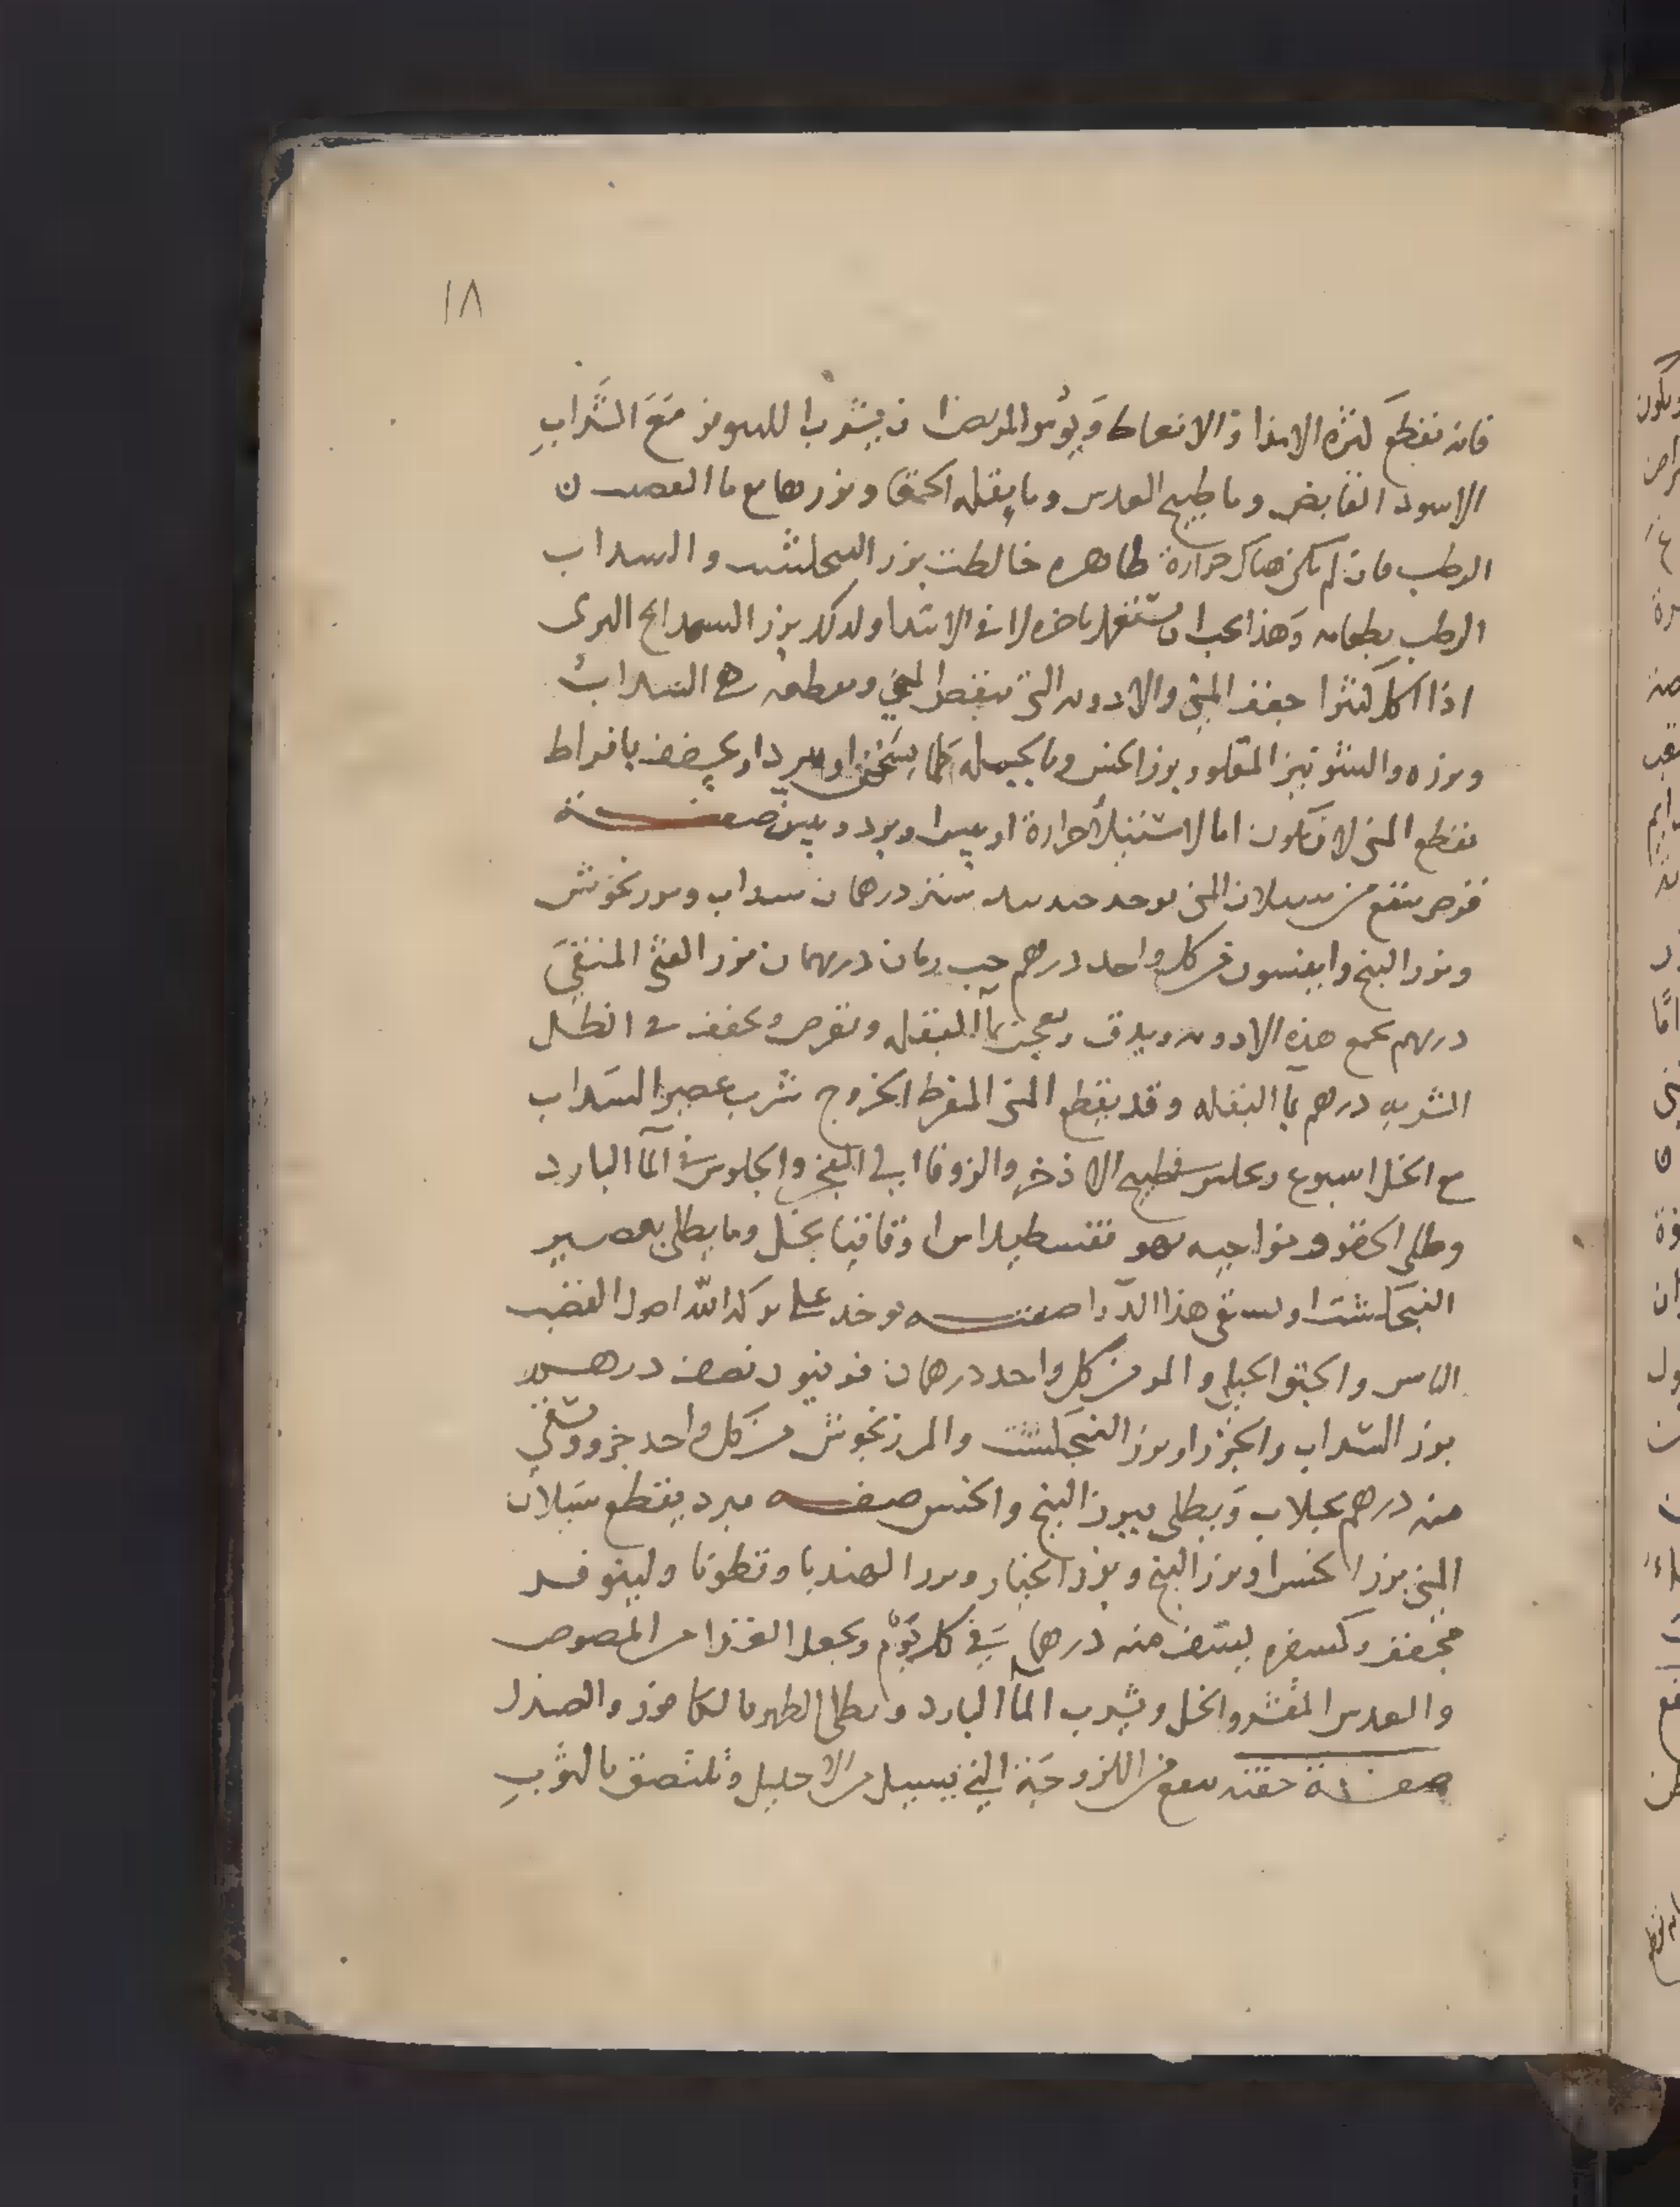 ١٨
فانه تقطع كثرة الامذا والانعاط وَيؤمر المريض ان يشرب اللينوفر مَعَ الشَّرابِ
الاسود القابض وما طبيخ العدس وما بقلة الحمقا وبزرها مع ما القصب ن
الرطب فان لم يكن هناك حرارة ظاهره خالطت بزر البنجنكشت والسداب
الرطب بطعامه وَهذا يجب ان تستعمله باخره لا في الابتدا وكذلك بزر الشهدانج البرى
اذا اكل كثيرا جفف المني والادويه التي تنقص المني وتقطعه هي السداب
وبزره والشونيز المقلو وبزر الخس وبالجمله كلما يسخن او يبرد او يجفف بافراط
يقطع المني لان تكون اما لاستيلا حرارة او يبس او برد ويبس صفـــة
قرص ينفع من سيلان المني يوخذ حندبيدستر درهمان سداب ومرزنجوش
وبزر البنج وانيسون من كل واحد درهم حب رمان درهمان بزر القثى المنقيَ
درهم يجمع هذه الادويه ويدق ويعجن بمآ البقله ويقرص ويجفف في الظـل
الشربه درهم بما البقله وقد يقطع المني المفرط الخروج شرب عصير السَداب
مع الخل اسبوع ويجلس في طبيخ الاذخر والزوفا ابلى النفخ والجلوس في المآ البارد
وطلى الحقو ونواحيه بهو فقسطيداس واقاقيا بخـل وما يطلى بعصير
البنجنكشت او يسقى هذا الدوا صفتـــه يوخذ على بركة الله اصول القضب
اليابس والحبق الجبلي والمر من كل واحد درهمان فوتنيو نصف درهـم
بزر السَداب والجزر او بزر البنجنكشت والمرزنجوش من كل واحد جزو ويسقى
منه درهم بجلاب وَيطلى ببزر البنج والخس صفـــه مبرد يقطع سَيلان
المني بزر الخس وبزر البنج وبزر الخيار وبزر الهندبا وقطونا ولينوفـر
مجفف وكسفره يستف منه درهمَاني في كل يَوم ويجعل الغذا من المصوص
والعدس المقشر والخل ويشرب المآ البارد ويطلى الظهر بالكافور والصندل
صفـــة حقنه تنفع من اللزوجة التي تسيل من الاحليل وتلتصق بالثوبِ